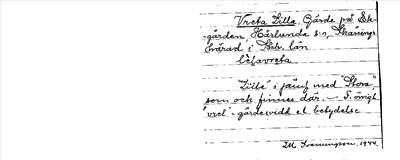 Vreta Lilla Gärde på Ek-
gården, Härlunda sn, Skånings
härad i Skb. län
"Lilla" i jämf med "Stora",
som och finnes där. — I. övrigt
"vret" - gärdesvidd el. betydelse
1944.